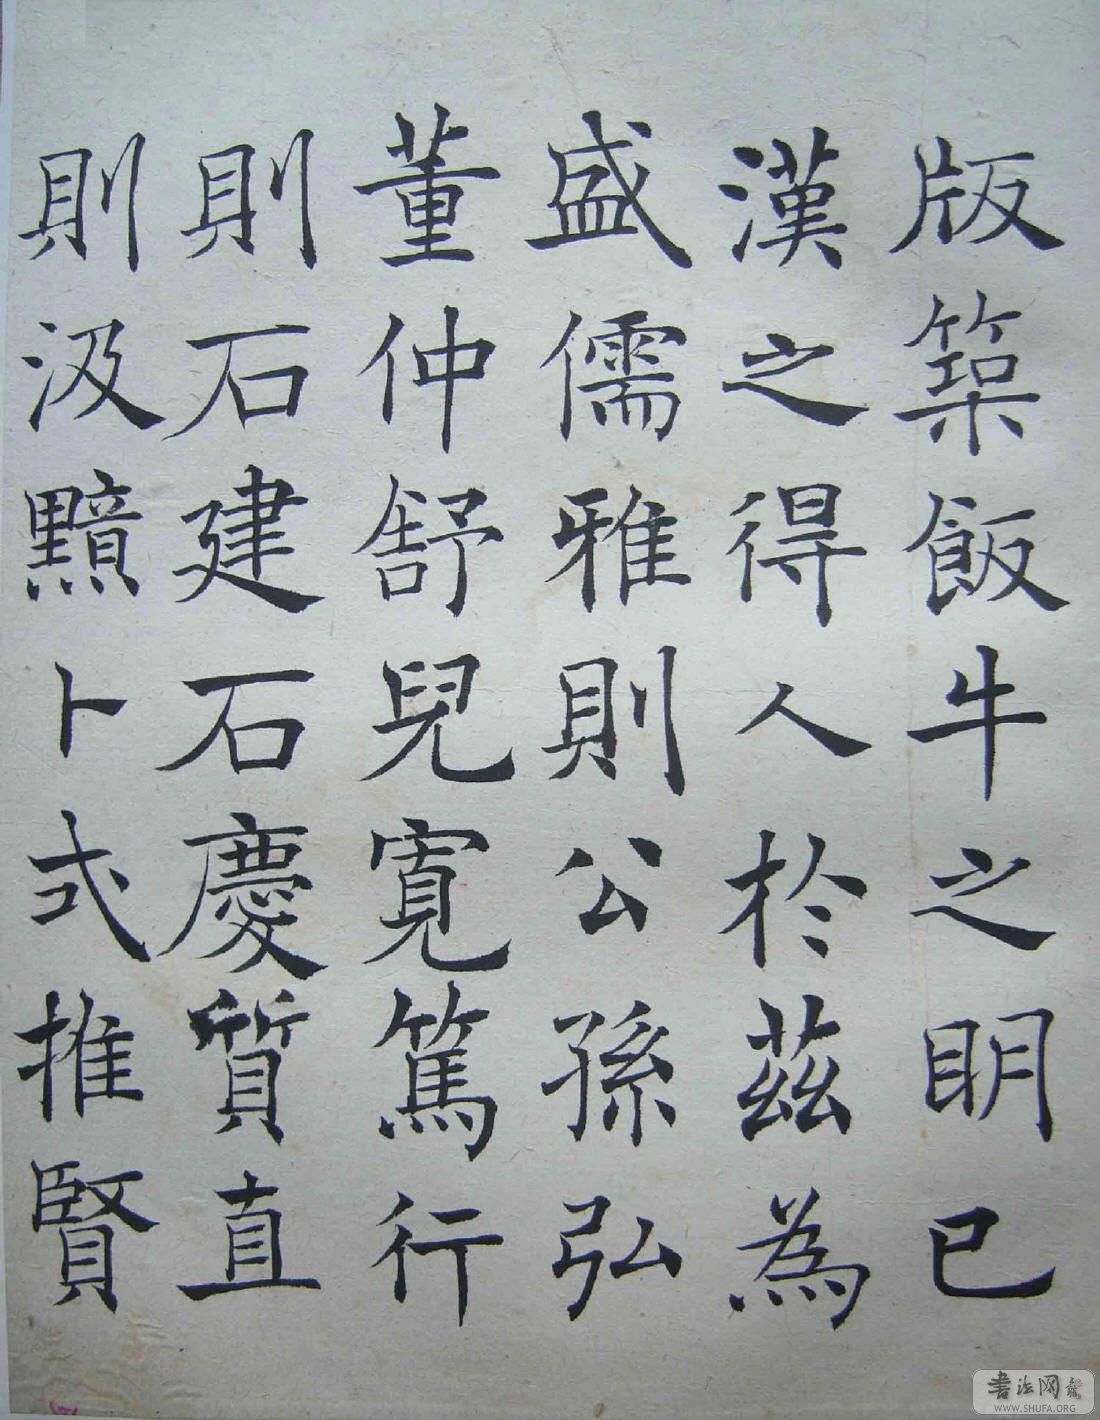 版築飯牛之朙已
漢之得人於茲為
盛儒雅則公孫弘
董仲舒兒寬篤行
則石建石慶質直
則汲黯卜式推賢
書法网
WWW.SHUFA.ORG